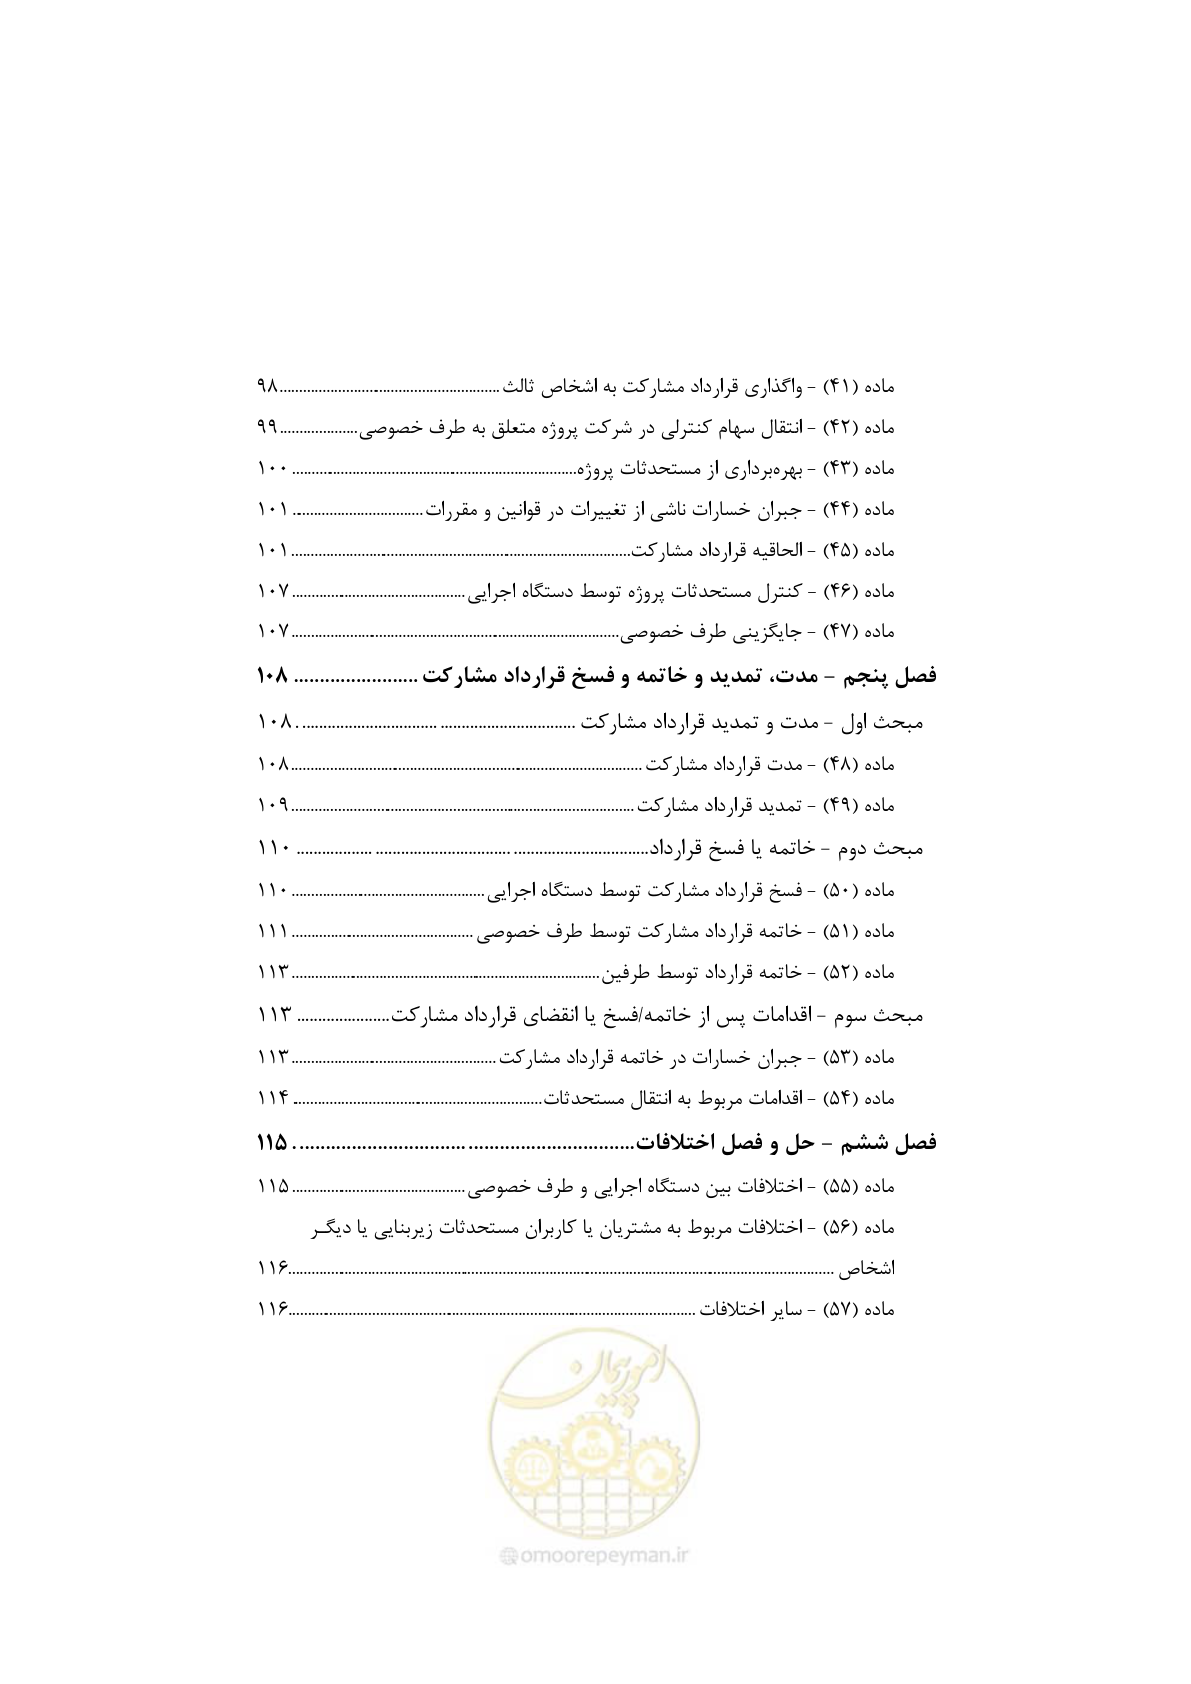 ماده (۴۱) - واگذاری قرارداد مشارکت به اشخاص ثالث ........ ۹۸
ماده (۴۲) - انتقال سهام کنترلی در شرکت پروژه متعلق به طرف خصوصی ........ ۹۹
ماده (۴۳) - بهره‌برداری از مستحدثات پروژه ........ ۱۰۰
ماده (۴۴) - جبران خسارات ناشی از تغییرات در قوانین و مقررات ........ ۱۰۱
ماده (۴۵) - الحاقیه قرارداد مشارکت ........ ۱۰۱
ماده (۴۶) - کنترل مستحدثات پروژه توسط دستگاه اجرایی ........ ۱۰۷
ماده (۴۷) - جایگزینی طرف خصوصی ........ ۱۰۷
فصل پنجم - مدت، تمدید و خاتمه و فسخ قرارداد مشارکت ........ ۱۰۸
مبحث اول - مدت و تمدید قرارداد مشارکت ........ ۱۰۸
ماده (۴۸) - مدت قرارداد مشارکت ........ ۱۰۸
ماده (۴۹) - تمدید قرارداد مشارکت ........ ۱۰۹
مبحث دوم - خاتمه یا فسخ قرارداد ........ ۱۱۰
ماده (۵۰) - فسخ قرارداد مشارکت توسط دستگاه اجرایی ........ ۱۱۰
ماده (۵۱) - خاتمه قرارداد مشارکت توسط طرف خصوصی ........ ۱۱۱
ماده (۵۲) - خاتمه قرارداد توسط طرفین ........ ۱۱۳
مبحث سوم - اقدامات پس از خاتمه/فسخ یا انقضای قرارداد مشارکت ........ ۱۱۳
ماده (۵۳) - جبران خسارات در خاتمه قرارداد مشارکت ........ ۱۱۳
ماده (۵۴) - اقدامات مربوط به انتقال مستحدثات ........ ۱۱۴
فصل ششم - حل و فصل اختلافات ........ ۱۱۵
ماده (۵۵) - اختلافات بین دستگاه اجرایی و طرف خصوصی ........ ۱۱۵
ماده (۵۶) - اختلافات مربوط به مشتریان یا کاربران مستحدثات زیربنایی یا دیگـر
اشخاص ........ ۱۱۶
ماده (۵۷) - سایر اختلافات ........ ۱۱۶
امور پیمان
@omoorepeyman.ir